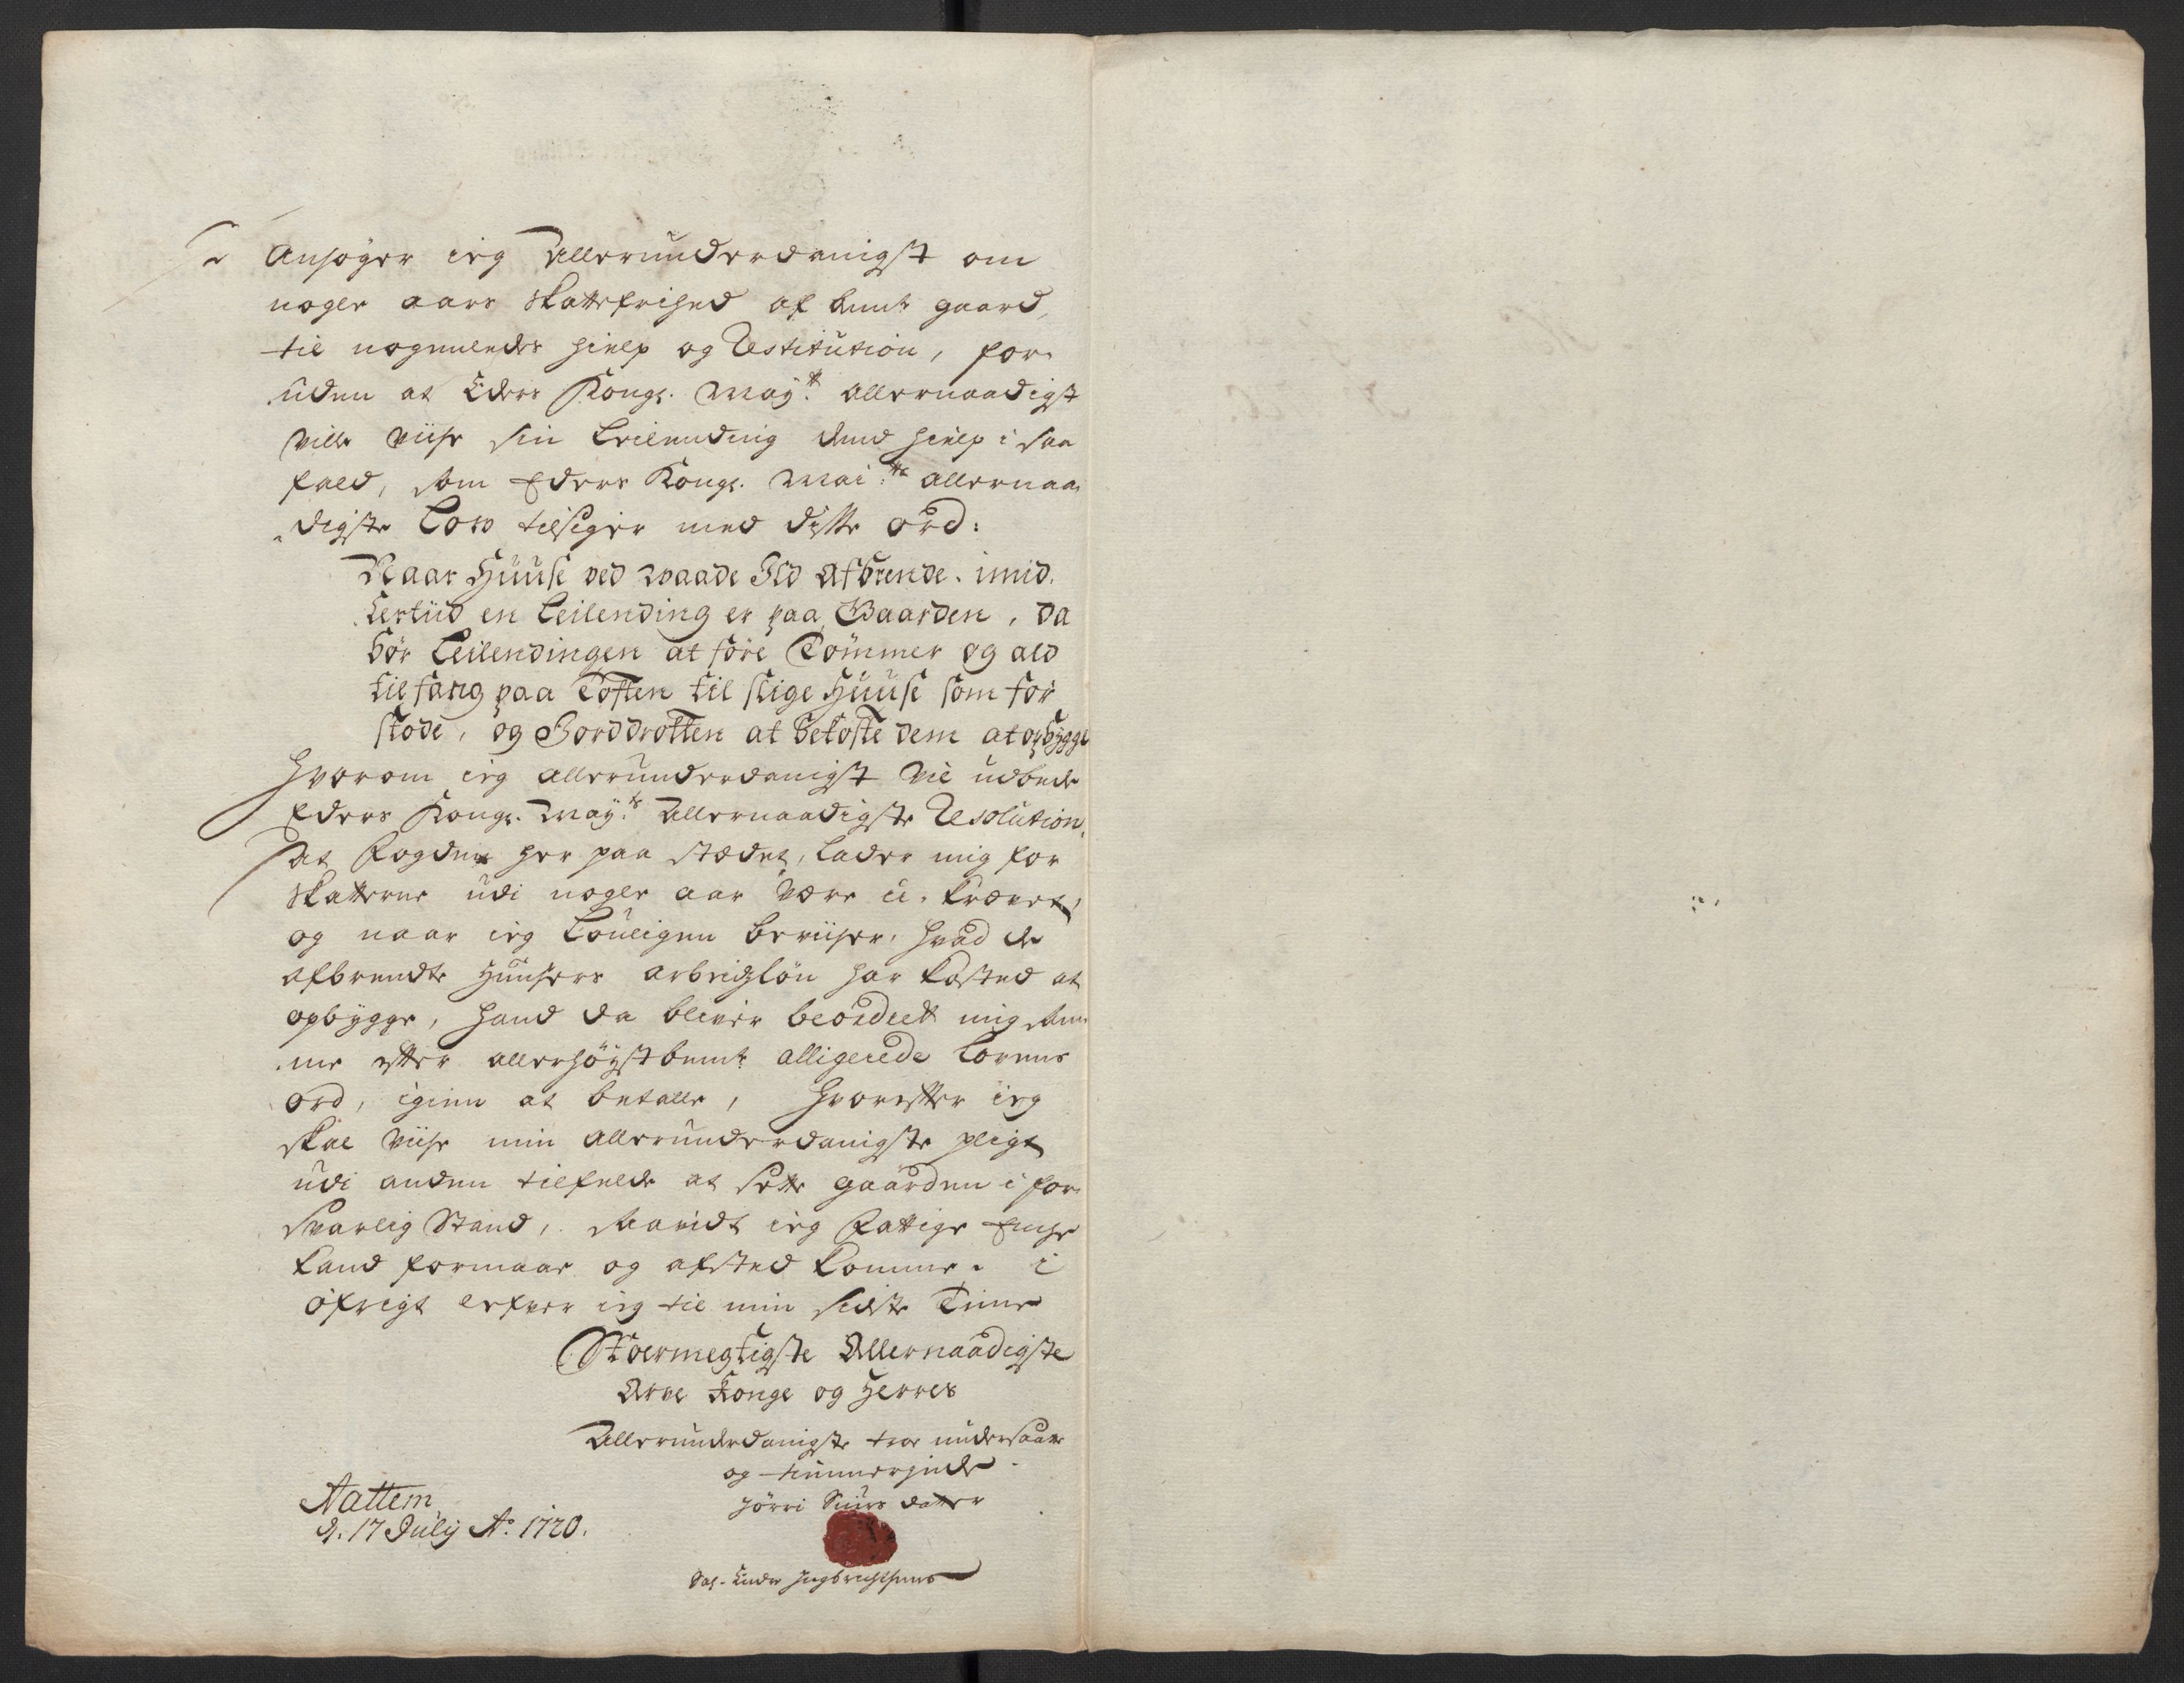 Ansøger ieg Allerunderdanigst om
nogle aars Skattefrihed af bemte gaard,
til nogenledes hielp og Restitution, for-
uden at Eders Kongl. May.tt allernaadigst
ville viise sin Leilending dend hielp i saa
fald, som Eders Kongl. Mai.tts allernaa-
digste Low tilsiger med disse ord:
Naar Huuse ved waade Ild afbrende, imid-
lertiid en Leilending er paa Gaarden, da
bör Leilendingen at före Tömmer og ald
tilfang paa Toften til slige Huuse som för
stode, og Jorddrotten at bekoste dem at opbygge
Hvorom ieg allerunderdanigst vil udbede
Eders Kongl. May.ts Allernaadigste Resolution,
at Fogden her paa stædet, lader mig for
Skatterne udi nogle aar være u-krævet,
og naar ieg Louligen beviiser, hvad de
afbrendte Huusers arbeidzlön har kosted at
opbygge, hand da bliver beordret mig sam-
me efter allerhöystbemte alligerede Lovens
ord, igien at betalle, Hvorefter ieg
skal viise min allerunderdanigste pligt
udi anden tilfelde at sætte gaarden i for-
svarlig Stand, saavidt ieg Fattige Enche
kand formaar og afsted komme. i
öfrigt lefver ieg til min sidste Time
Stoermegtigste Allernaadigste
Arve Konge og Herres
Allerunderdanigste troe undersaatt
og tiennerinde
Jörri Siurs datter
Aattem
d. 17 July Ao. 1720.
Sal. Endre Ingbrechtsens